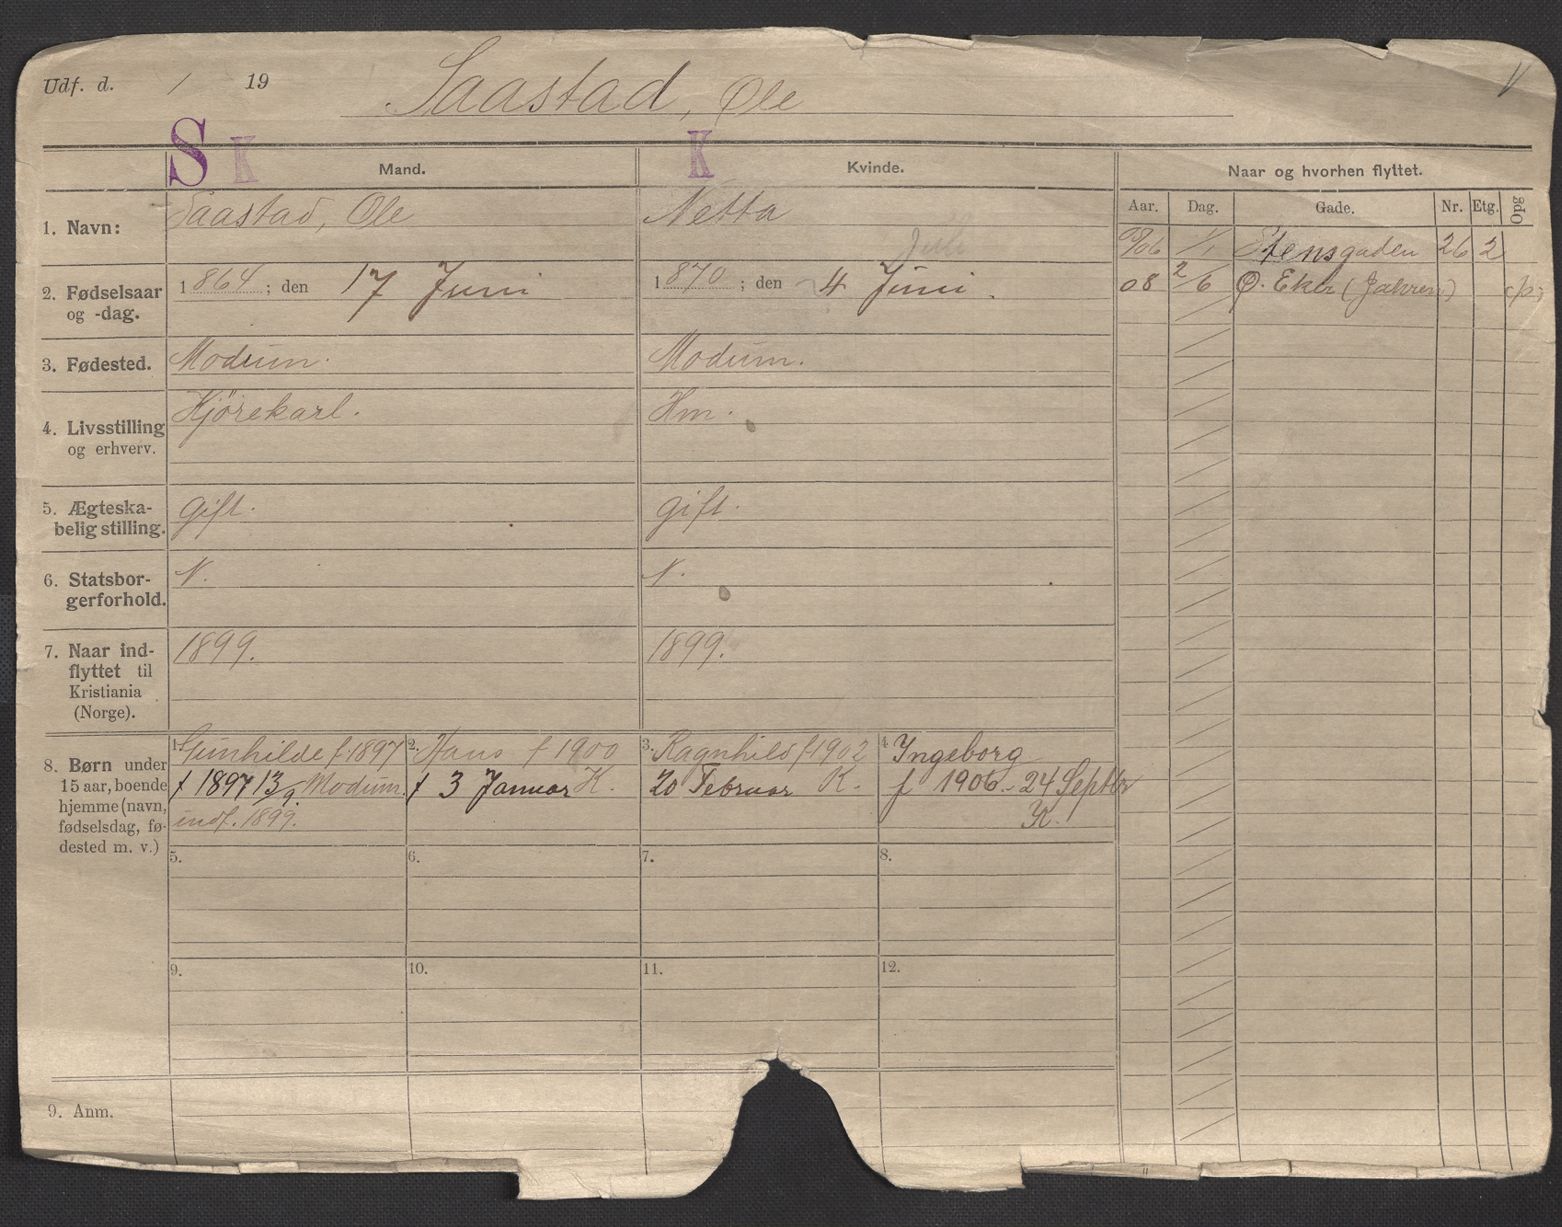 Udf. d. / 19
Saastad, Ole
S K Mand. K Kvinde. Naar og hvorhen flyttet.
Aar. Dag. Gade. Nr. Etg. Opg
1. Navn: Saastad, Ole Netta
06 1/1 Stensgaden 26 2
Juli
2. Fødselsaar og -dag. 1864; den 17 Juni 1870; den 4 Juni.
08 2/6 Ø. Eker (Jahren)
3. Fødested. Modum. Modum.
4. Livsstilling og erhverv. Kjørekarl. Hm.
5. Ægteska-
belig stilling. gift. gift.
6. Statsbor-
gerforhold. N. N.
7. Naar ind-
flyttet til
Kristiania
(Norge). 1899. 1899.
8. Børn under
15 aar, boende
hjemme (navn,
fødselsdag, fø-
dested m. v.)
1. Gunhilde f 1897
f 1897 13/9 Modum.
indf. 1899.
2. Hans f 1900
f 3 Januar K.
3. Ragnhild f 1902
20 Februar K.
4. Ingeborg
f 1906 - 24 Septbr
K.
5. 6. 7. 8.
9. 10. 11. 12.
9. Anm.